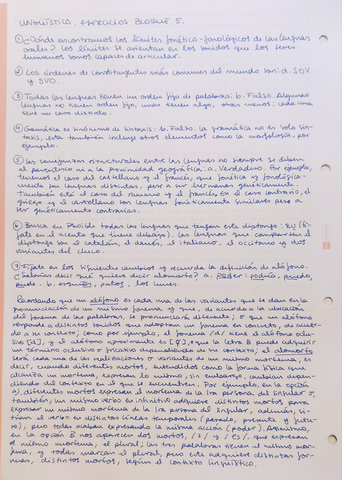 LINGÜÍSTICA. EJERCICIOS BLOQUE 5.
① ¿Dónde encontramos los límites fonético-fonológicos de las lenguas
orales? Los límites se asientan en los sonidos que los seres
humanos somos capaces de articular.
② Los órdenes de constituyentes más comunes del mundo son: d. SOV
y SVO.
③ Todas las lenguas tienen un orden fijo de palabras: b. Falso. Algunas
lenguas no tienen orden fijo, unas tienen algo, otras menos; cada una
tiene un caso distinto.
④ Gramática es sinónimo de sintaxis: b. Falso. La gramática no es solo sin-
taxis, esta también incluye otros elementos como la morfología, por
ejemplo.
⑤ Las semejanzas estructurales entre las lenguas no siempre se deben
al parentesco ni a la proximidad geográfica: a. Verdadero. Por ejemplo,
tenemos el caso del castellano y el francés, que fonética y fonológica-
mente son lenguas distintas, pese a ser hermanas genéticamente.
También está el caso del rumano y el francés. En el caso contrario, el
griego y el castellano son lenguas fonéticamente similares pese a
ser genéticamente contrarias.
⑥ Busca en Phoible todas las lenguas que tengan este diptongo: ɛu (fí-
jate en el acento que tienen debajo). Las lenguas que comparten el
diptongo son el catalán, el danés, el italiano, el occitano y dos
variantes del checo.
⑦ Fíjate en los siguientes cambios y recuerda la definición de alófono.
¿Sabrías decir qué quiere decir alomorfo? a. Poder: podría, puedo,
pude. b. esquíes, patos, los lunes.
Recordando que un alófono es cada una de las variantes que se dan en la
pronunciación de un mismo fonema y que, de acuerdo a la ubicación
del fonema en las palabras, se pronunciará diferente; o que un alófono
responde a distintos sonidos que adoptan un fonema en concreto, de acuer-
do a su contexto, como por ejemplo, el fonema /d/ tiene el alófono oclu-
sivo [d], y el alófono aproximante es [ð], o que la letra B puede adquirir
un término oclusivo o fricativo dependiendo de su contexto, el alomorfo
será cada una de las realizaciones o variantes de un mismo morfema, es
decir, cuando diferentes morfos, entendidos como la forma física que
actualiza un morfema, expresa lo mismo y, sin embargo, cambian depen-
diendo del contexto en el que se encuentren. Por ejemplo, en la opción
a), diferentes morfos expresan el morfema de 1ra persona del singular o,
también, un mismo verbo en infinitivo adquiere distintos morfos para
expresar un mismo morfema de la 1ra persona del singular, además, si-
túan el verbo en distintas líneas temporales (pasado, presente y futu-
ro), pero todas acaban expresando la misma acción (poder). Asimismo,
en la opción B nos aparecen dos morfos, /s/ y /es/, que expresan
el mismo morfema, el plural; las tres palabras tienen el mismo morfe-
ma, y todas marcan el plural, pero este adquiere distintas for-
mas, distintos morfos, según el contexto lingüístico.